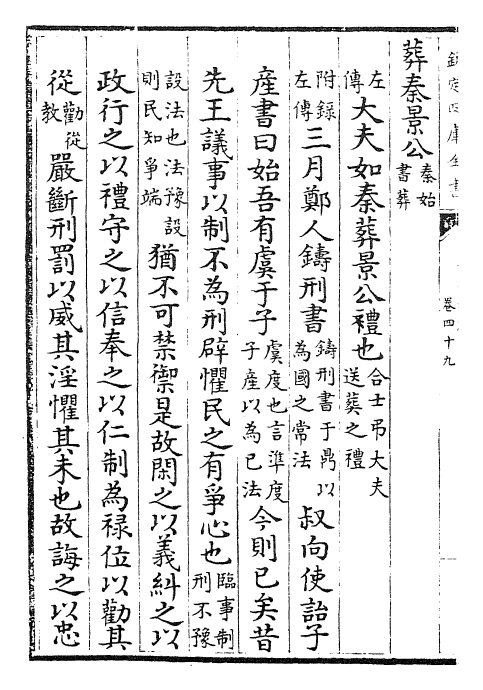 欽定四庫全書
卷四十九
葬秦景公秦始書葬
左傳大夫如秦葬景公禮也合士弔大夫送葬之禮
附錄左傳三月鄭人鑄刑書鑄刑書于鼎以為國之常法叔向使詒子
產書曰始吾有虞于子虞度也言準度子產以為已法今則已矣昔
先王議事以制不為刑辟懼民之有爭心也臨事制刑不豫
設法也法豫設則民知爭端猶不可禁禦是故閑之以義糾之以
政行之以禮守之以信奉之以仁制為祿位以勸其
從勸從教嚴斷刑罰以威其淫懼其未也故誨之以忠